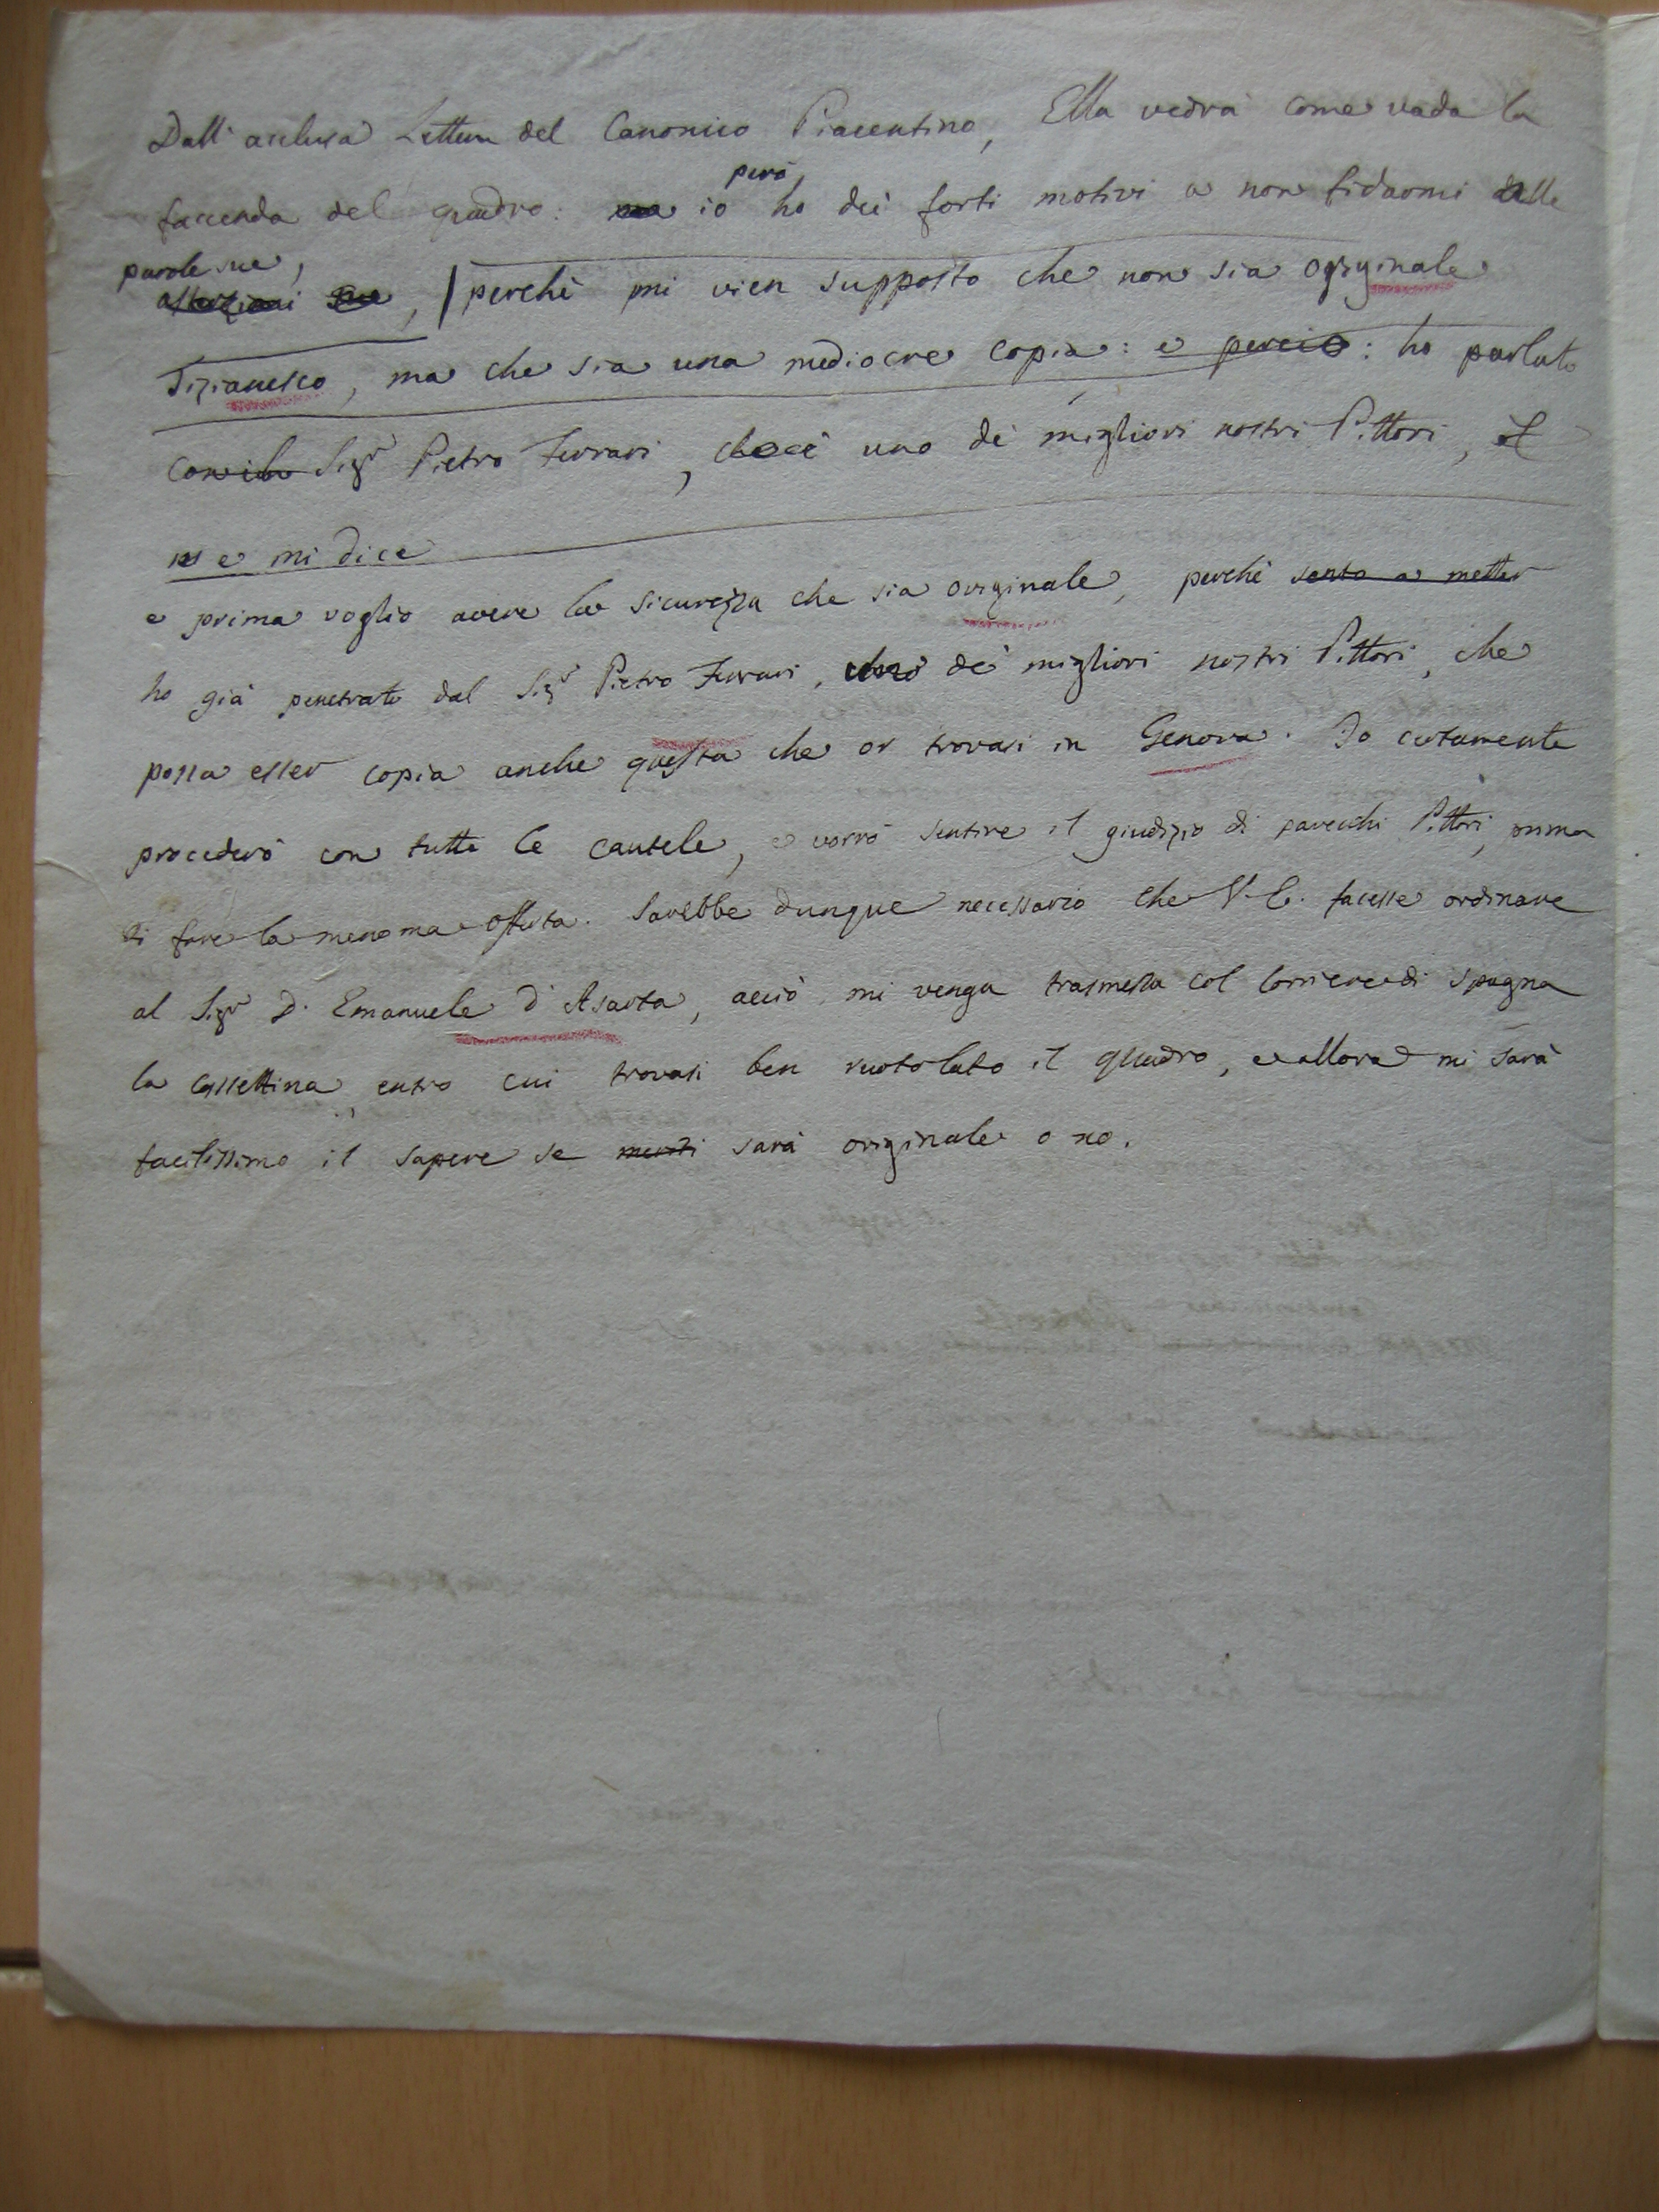 Dall' acclusa Lettera del Canonico Piacentino, Ella vedrà come vada la
però
faccenda del quadro: ma io ho dei forti motivi a non fidarmi delle
parole sue,
sue, perchè mi vien supposto che non sia originale
Tizianesco, ma che sia una mediocre copia: e perciò: ho parlato
con il Sigr Pietro Ferrari, che è uno de' migliori nostri Pittori,
e mi dice
e prima voglio avere la sicurezza che sia originale, perchè sento a metter
ho già penetrato dal Sigr Pietro Ferrari, uno de' migliori nostri Pittori, che
possa esser copia anche questa che or trovasi in Genova. Io certamente
procederò con tutte le cautele, e vorrò sentire il giudizio di parecchi Pittori, prima
di fare la menoma offerta. Sarebbe dunque necessario che V. E. facesse ordinare
al Sigr D. Emanuele d'Asarta, acciò mi venga trasmessa col Corriere di Spagna
la Cassettina, entro cui trovasi ben ruotolato il quadro, e allora mi sarà
facilissimo il sapere se sarà originale o no.